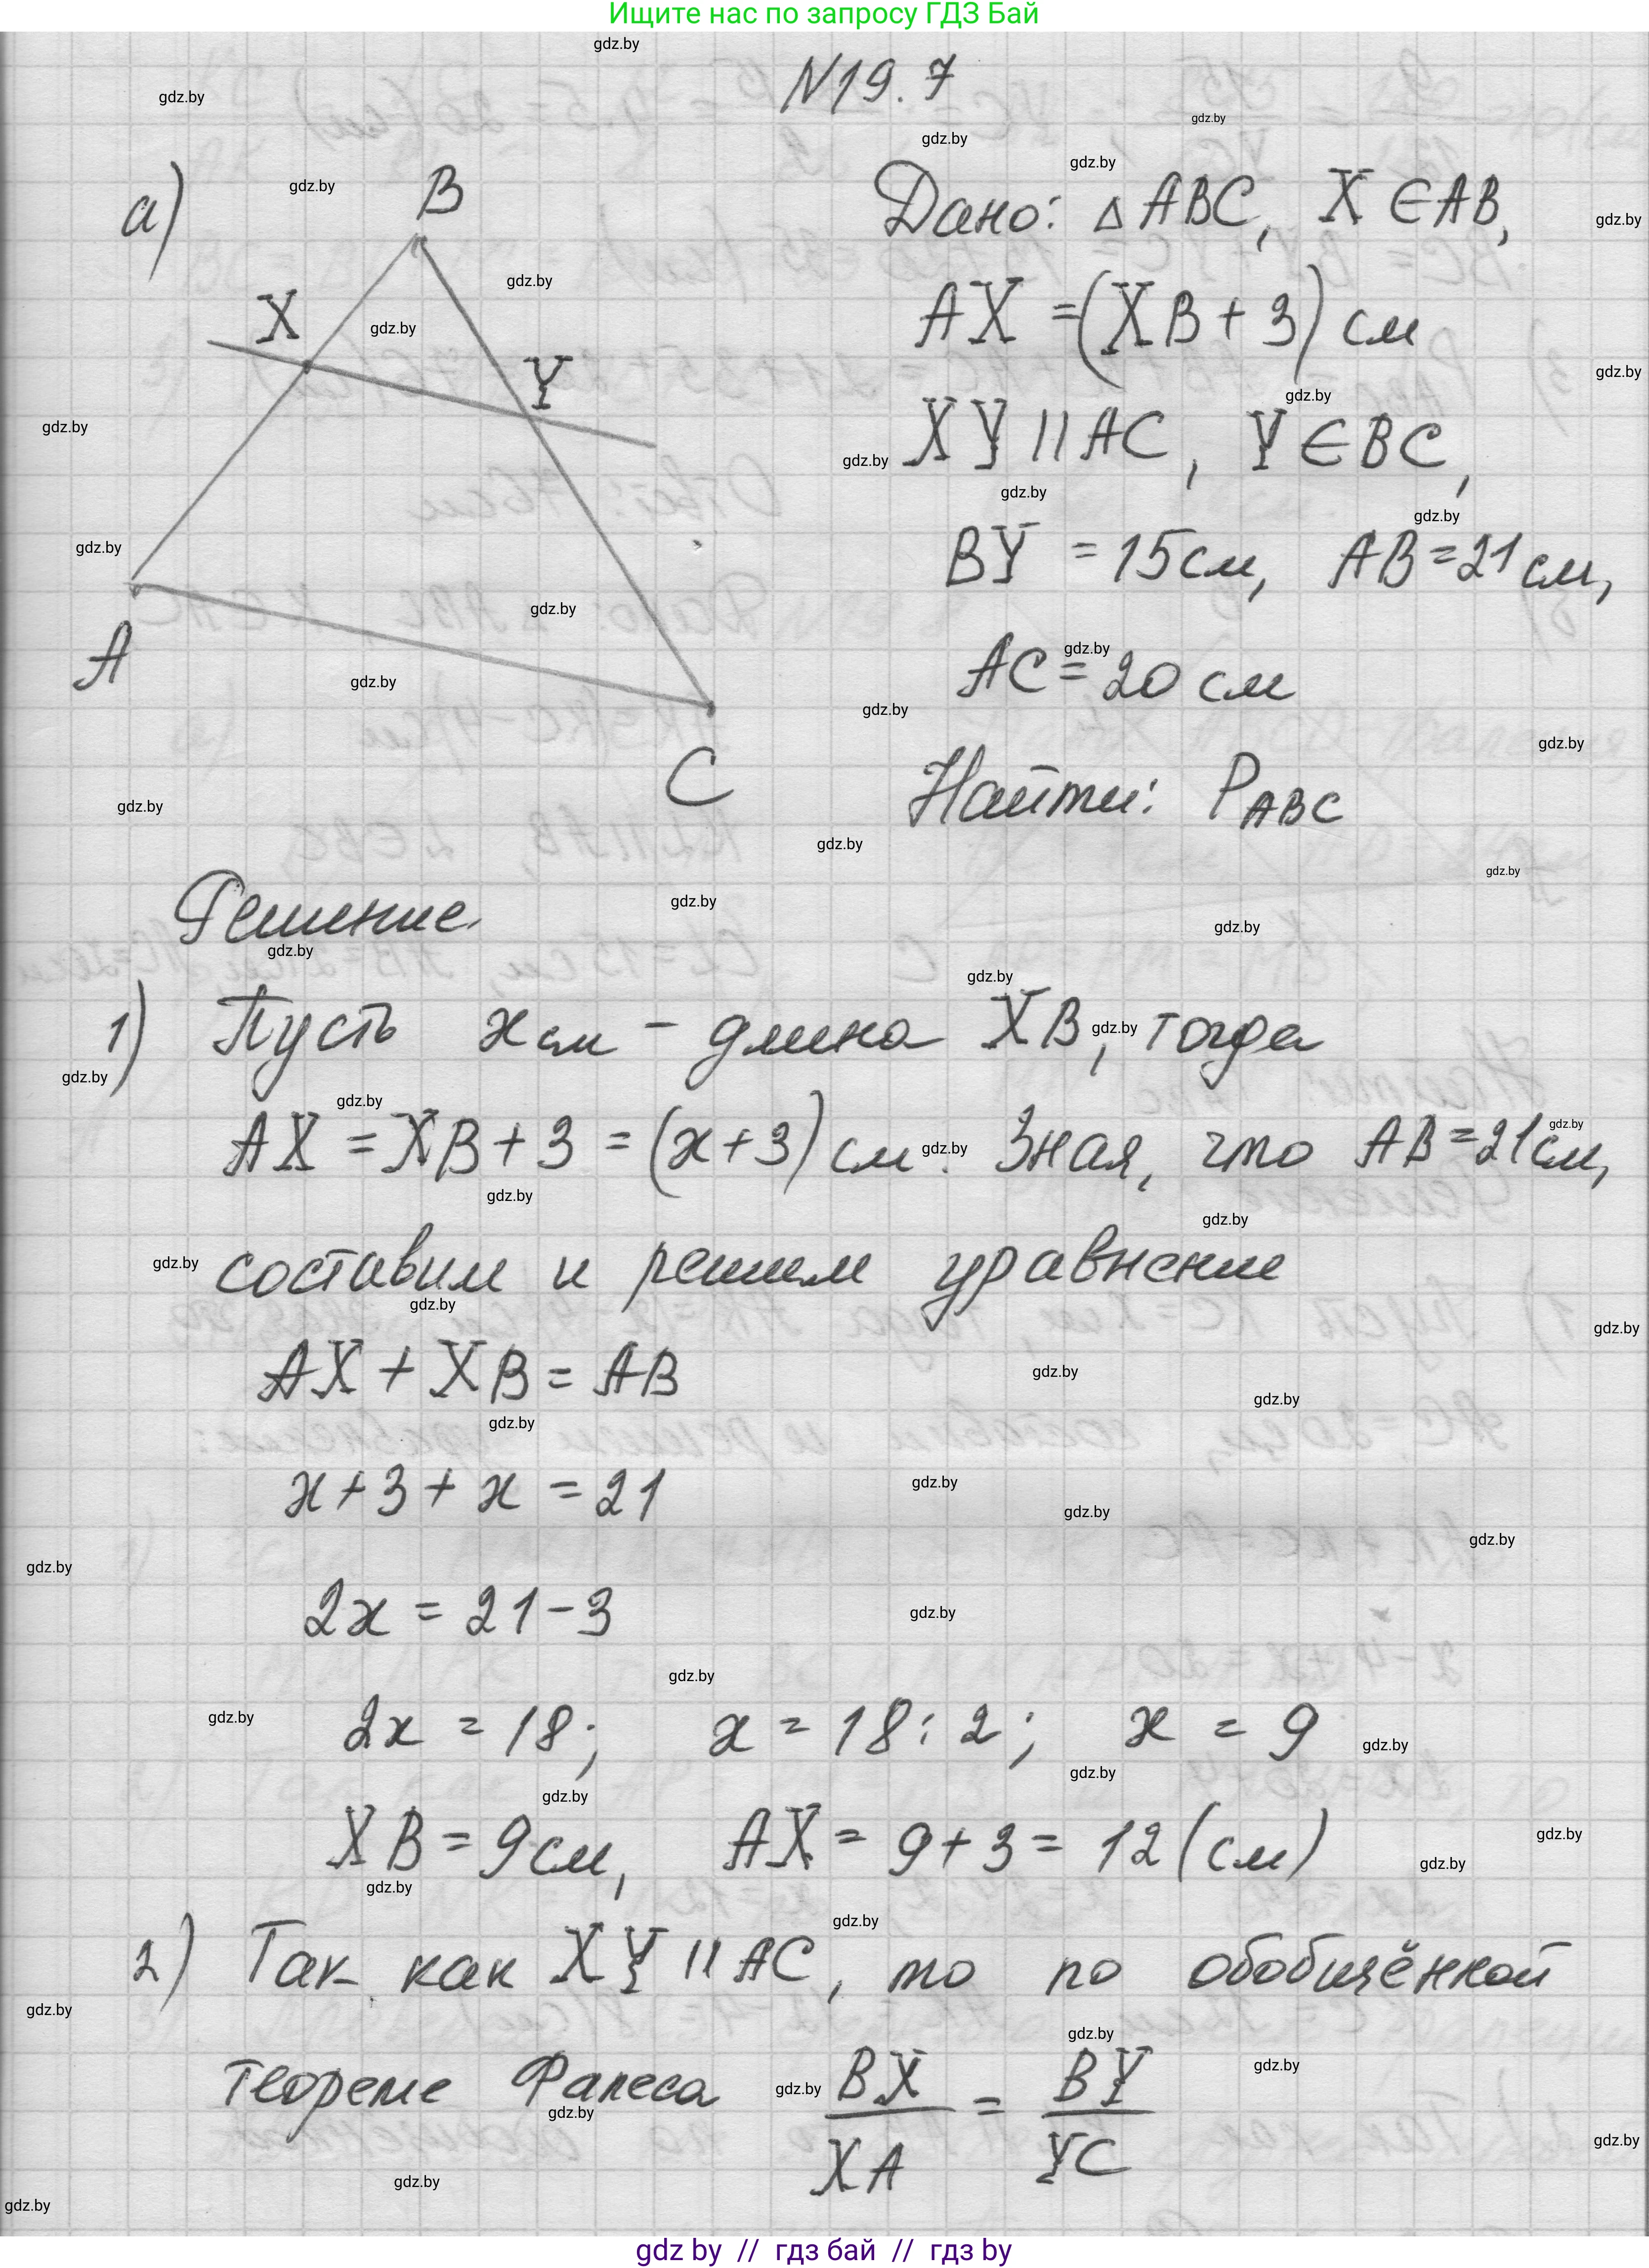 Ищите нас по запросу ГДЗ Бай
N19.7
а)
B
X
Y
A
C
Дано: △ABC, X ∈ AB,
AX = (XB + 3) см
XY || AC, Y ∈ BC,
BY = 15 см, AB = 21 см,
AC = 20 см
Найти: P_ABC
Решение.
1) Пусть x см – длина XB, тогда
AX = XB + 3 = (x + 3) см. Зная, что AB = 21 см,
составим и решим уравнение
AX + XB = AB
x + 3 + x = 21
2x = 21 – 3
2x = 18; x = 18 : 2; x = 9
XB = 9 см, AX = 9 + 3 = 12 (см)
2) Так как XY || AC, то по обобщённой
теореме Фалеса BX/XA = BY/YC
gdz by // гдз бай // гдз by